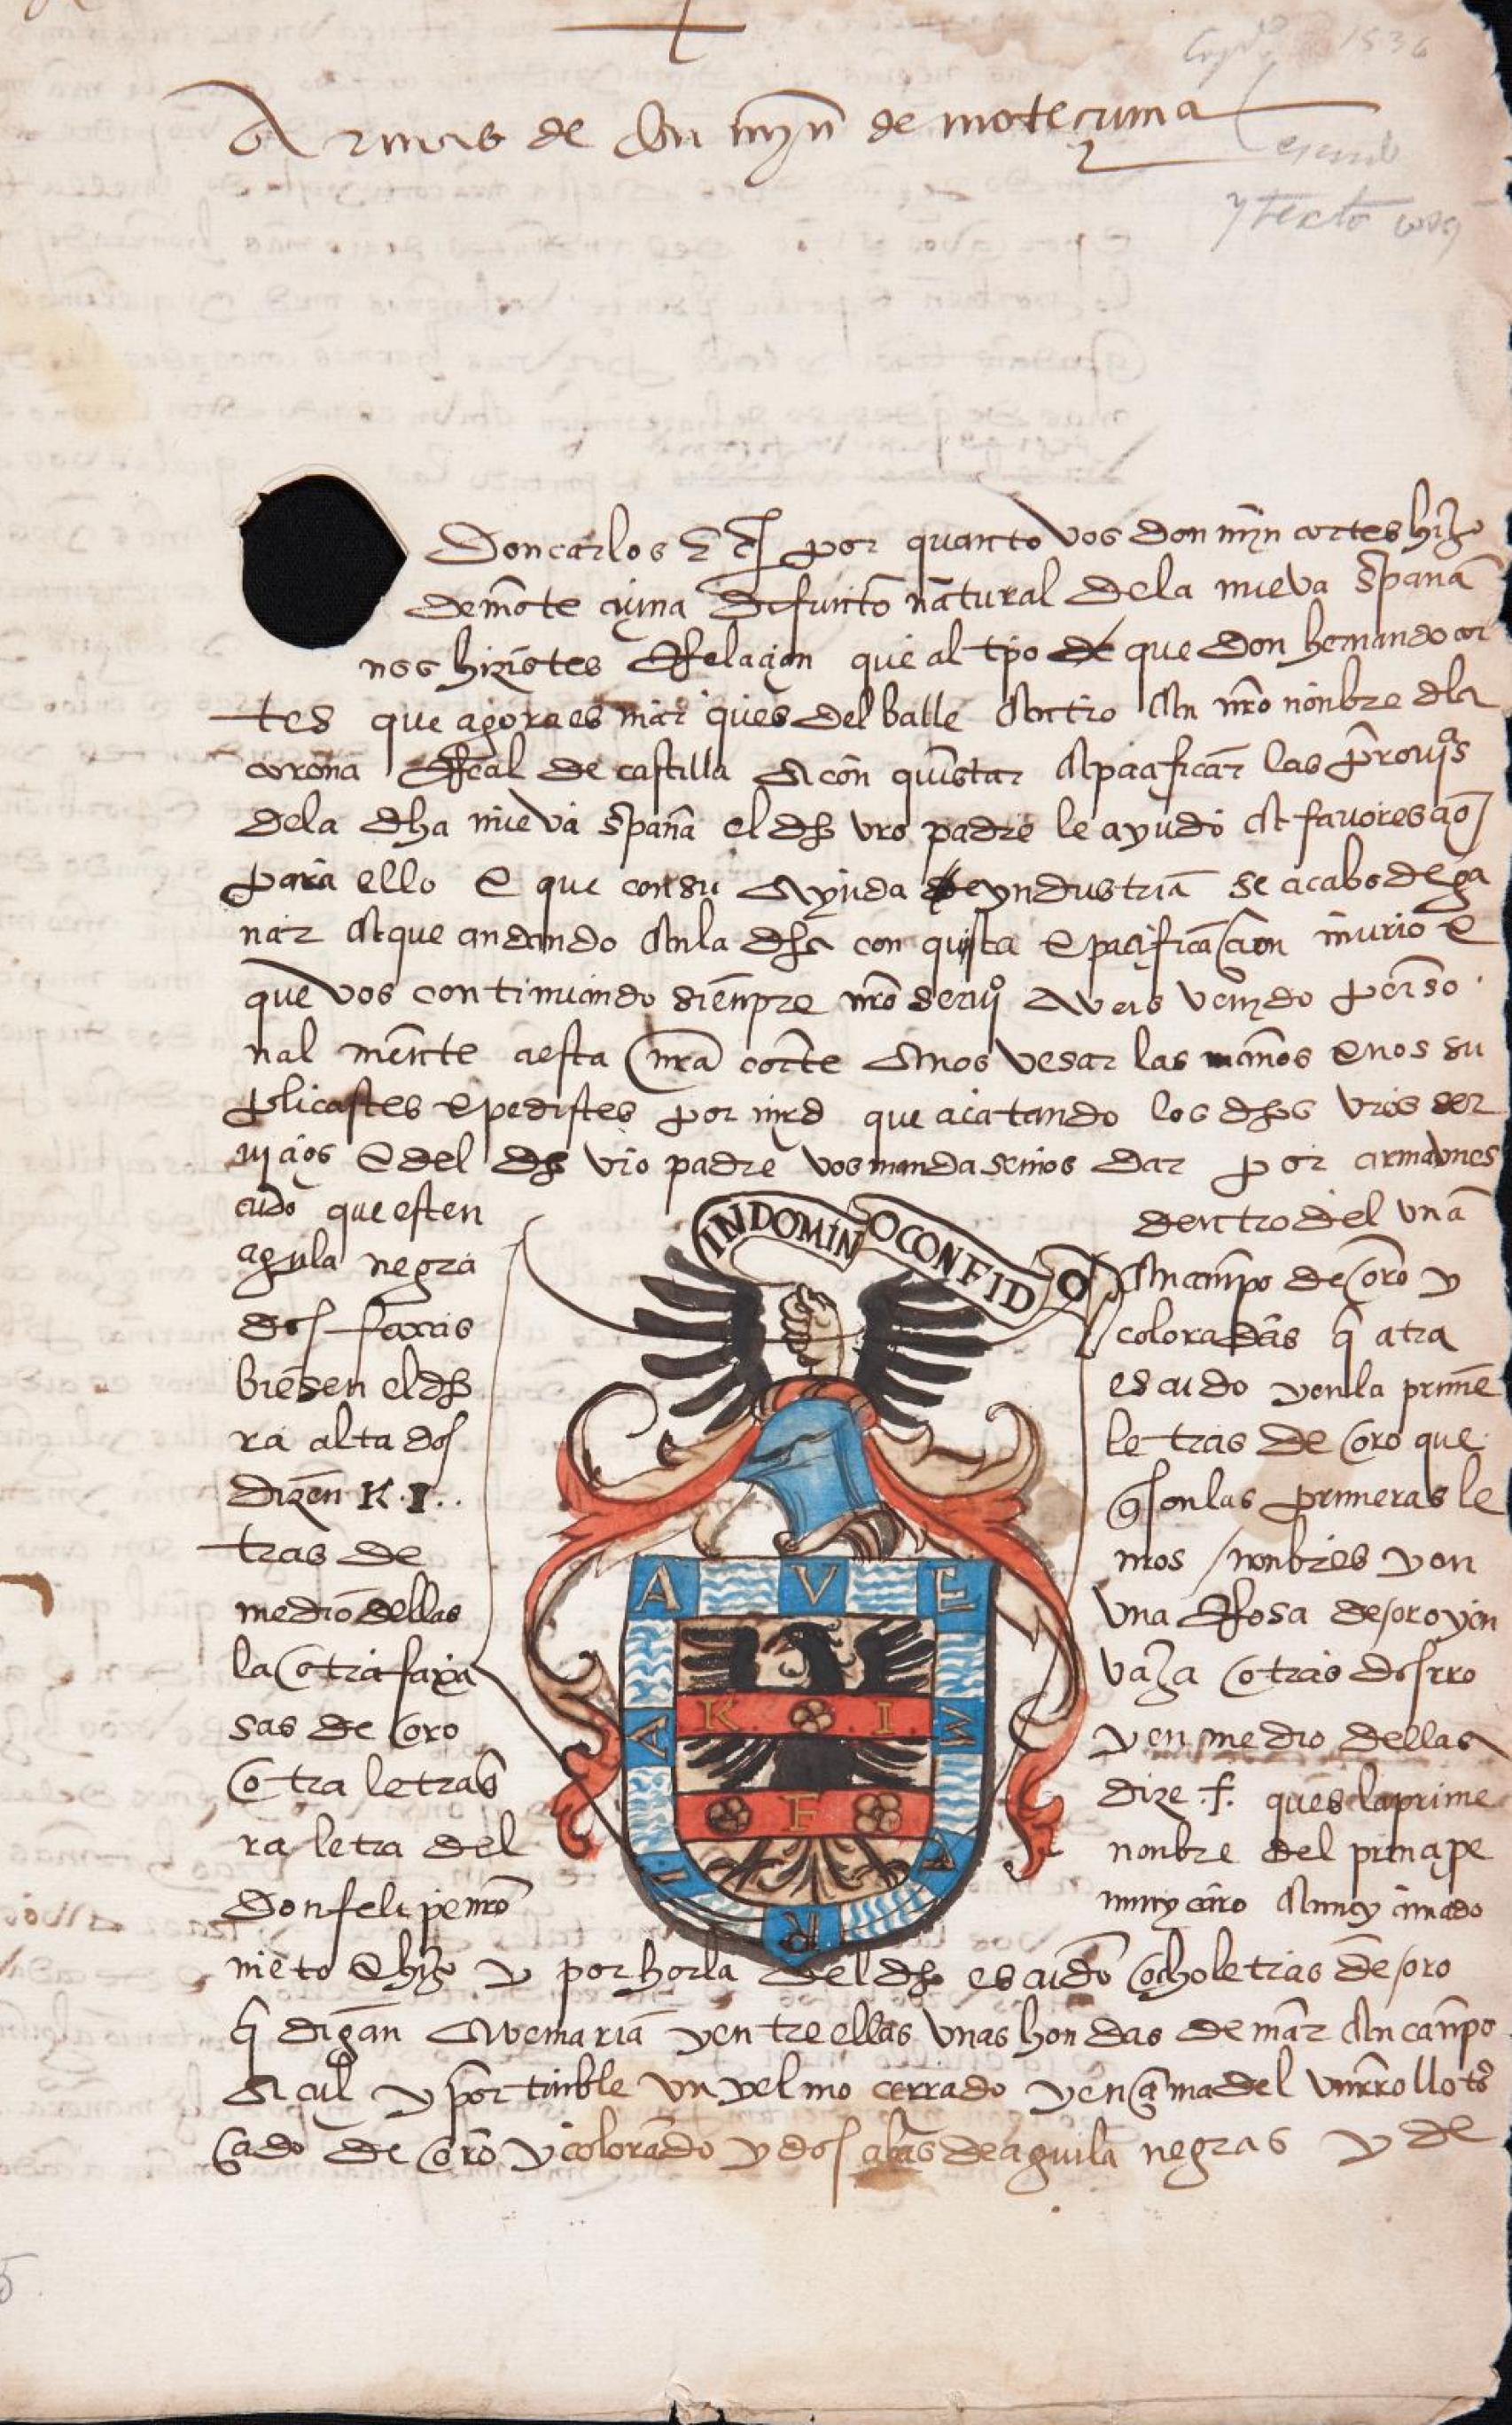 Armas de don myn de motecçuma
1536
y texto
Don carlos &c por quanto vos don myn cortes hijo
de mote çuma difunto natural de la nueva spaña
nos hizistes Relaçion que al tpo de que don hernando cor
tes que agora es marques del balle entro en nro nonbre dla
corona Real de castilla a conquistar e paçificar las provyas
de la dha nueva spaña el dho vro padre le ayudo e favoresçio
para ello e que con su ayuda e yndustria se acabo de ga
nar e que andando en la dha conquista e paçificaçion murio e
que vos continuando sienpre nro serviº aveis venydo perso
nal mente a esta nra corte a nos vesar las manos e nos su
plicastes e pedistes por mrd que acatando los dhos vros ser
viçios e del dho vro padre vos mandasemos dar por armas vn es
cudo que esten dentro del vna
aguila negra en canpo de oro y
dos faxas coloradas q atra
biesen el dho escudo y en la prime
ra alta dos letras de oro que
dizen K. I.. q son las primeras le
tras de mos nonbres y en
medio dellas vna Rosa de oro y en
la otra faxa vaxa otras dos rro
sas de oro y en medio dellas
otra letra dize .f. ques la prime
ra letra del nonbre del prinçipe
don felipe nro muy caro e muy amado
nieto e hijo y por horla del dho escudo ocho letras de oro
q digan avemaria y entre ellas vnas hondas de mar en canpo
açul y por tinble vn yelmo cerrado y ençima del vn rrollo tor
çado de oro y colorado y dos alas de aguila negras y de
INDOMINO CONFIDO
A V E
K . I
M
A
F
A
R
I